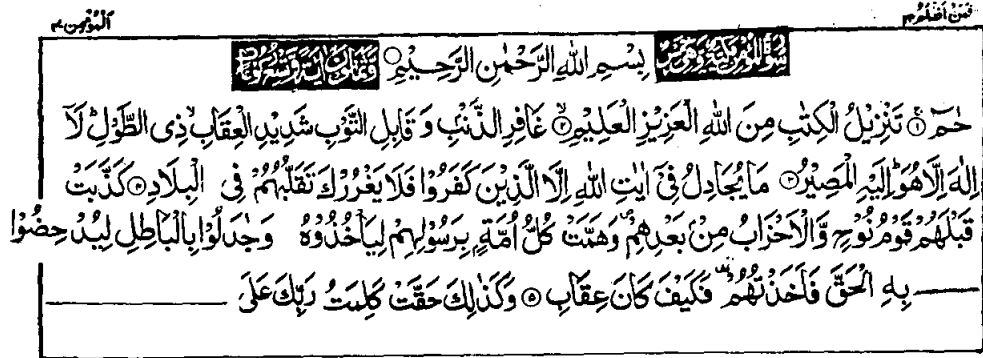 فمن اظلم ۲۴ المؤمن ۴۰
سورة المؤمن مكية وهى خمس بِسْمِ اللهِ الرَّحْمٰنِ الرَّحِيْمِ وثمانون اية وتسع ركوعات
حٰمٓ ۚ﴿۱﴾ تَنْزِيْلُ الْكِتٰبِ مِنَ اللهِ الْعَزِيْزِ الْعَلِيْمِ ۙ﴿۲﴾ غَافِرِ الذَّنْۢبِ وَ قَابِلِ التَّوْبِ شَدِيْدِ الْعِقَابِ ۙ ذِى الطَّوْلِ ؕ لَاۤ
اِلٰهَ اِلَّا هُوَ ؕ اِلَيْهِ الْمَصِيْرُ ﴿۳﴾ مَا يُجَادِلُ فِىْۤ اٰيٰتِ اللهِ اِلَّا الَّذِيْنَ كَفَرُوْا فَلَا يَغْرُرْكَ تَقَلُّبُهُمْ فِى الْبِلَادِ ﴿۴﴾ كَذَّبَتْ
قَبْلَهُمْ قَوْمُ نُوْحٍ وَّالْاَحْزَابُ مِنْۢ بَعْدِهِمْ ۪ وَهَمَّتْ كُلُّ اُمَّةٍۭ بِرَسُوْلِهِمْ لِيَاْخُذُوْهُ وَجٰدَلُوْا بِالْبَاطِلِ لِيُدْحِضُوْا
بِهِ الْحَقَّ فَاَخَذْتُهُمْ ۟ فَكَيْفَ كَانَ عِقَابِ ﴿۵﴾ وَكَذٰلِكَ حَقَّتْ كَلِمَتُ رَبِّكَ عَلَى